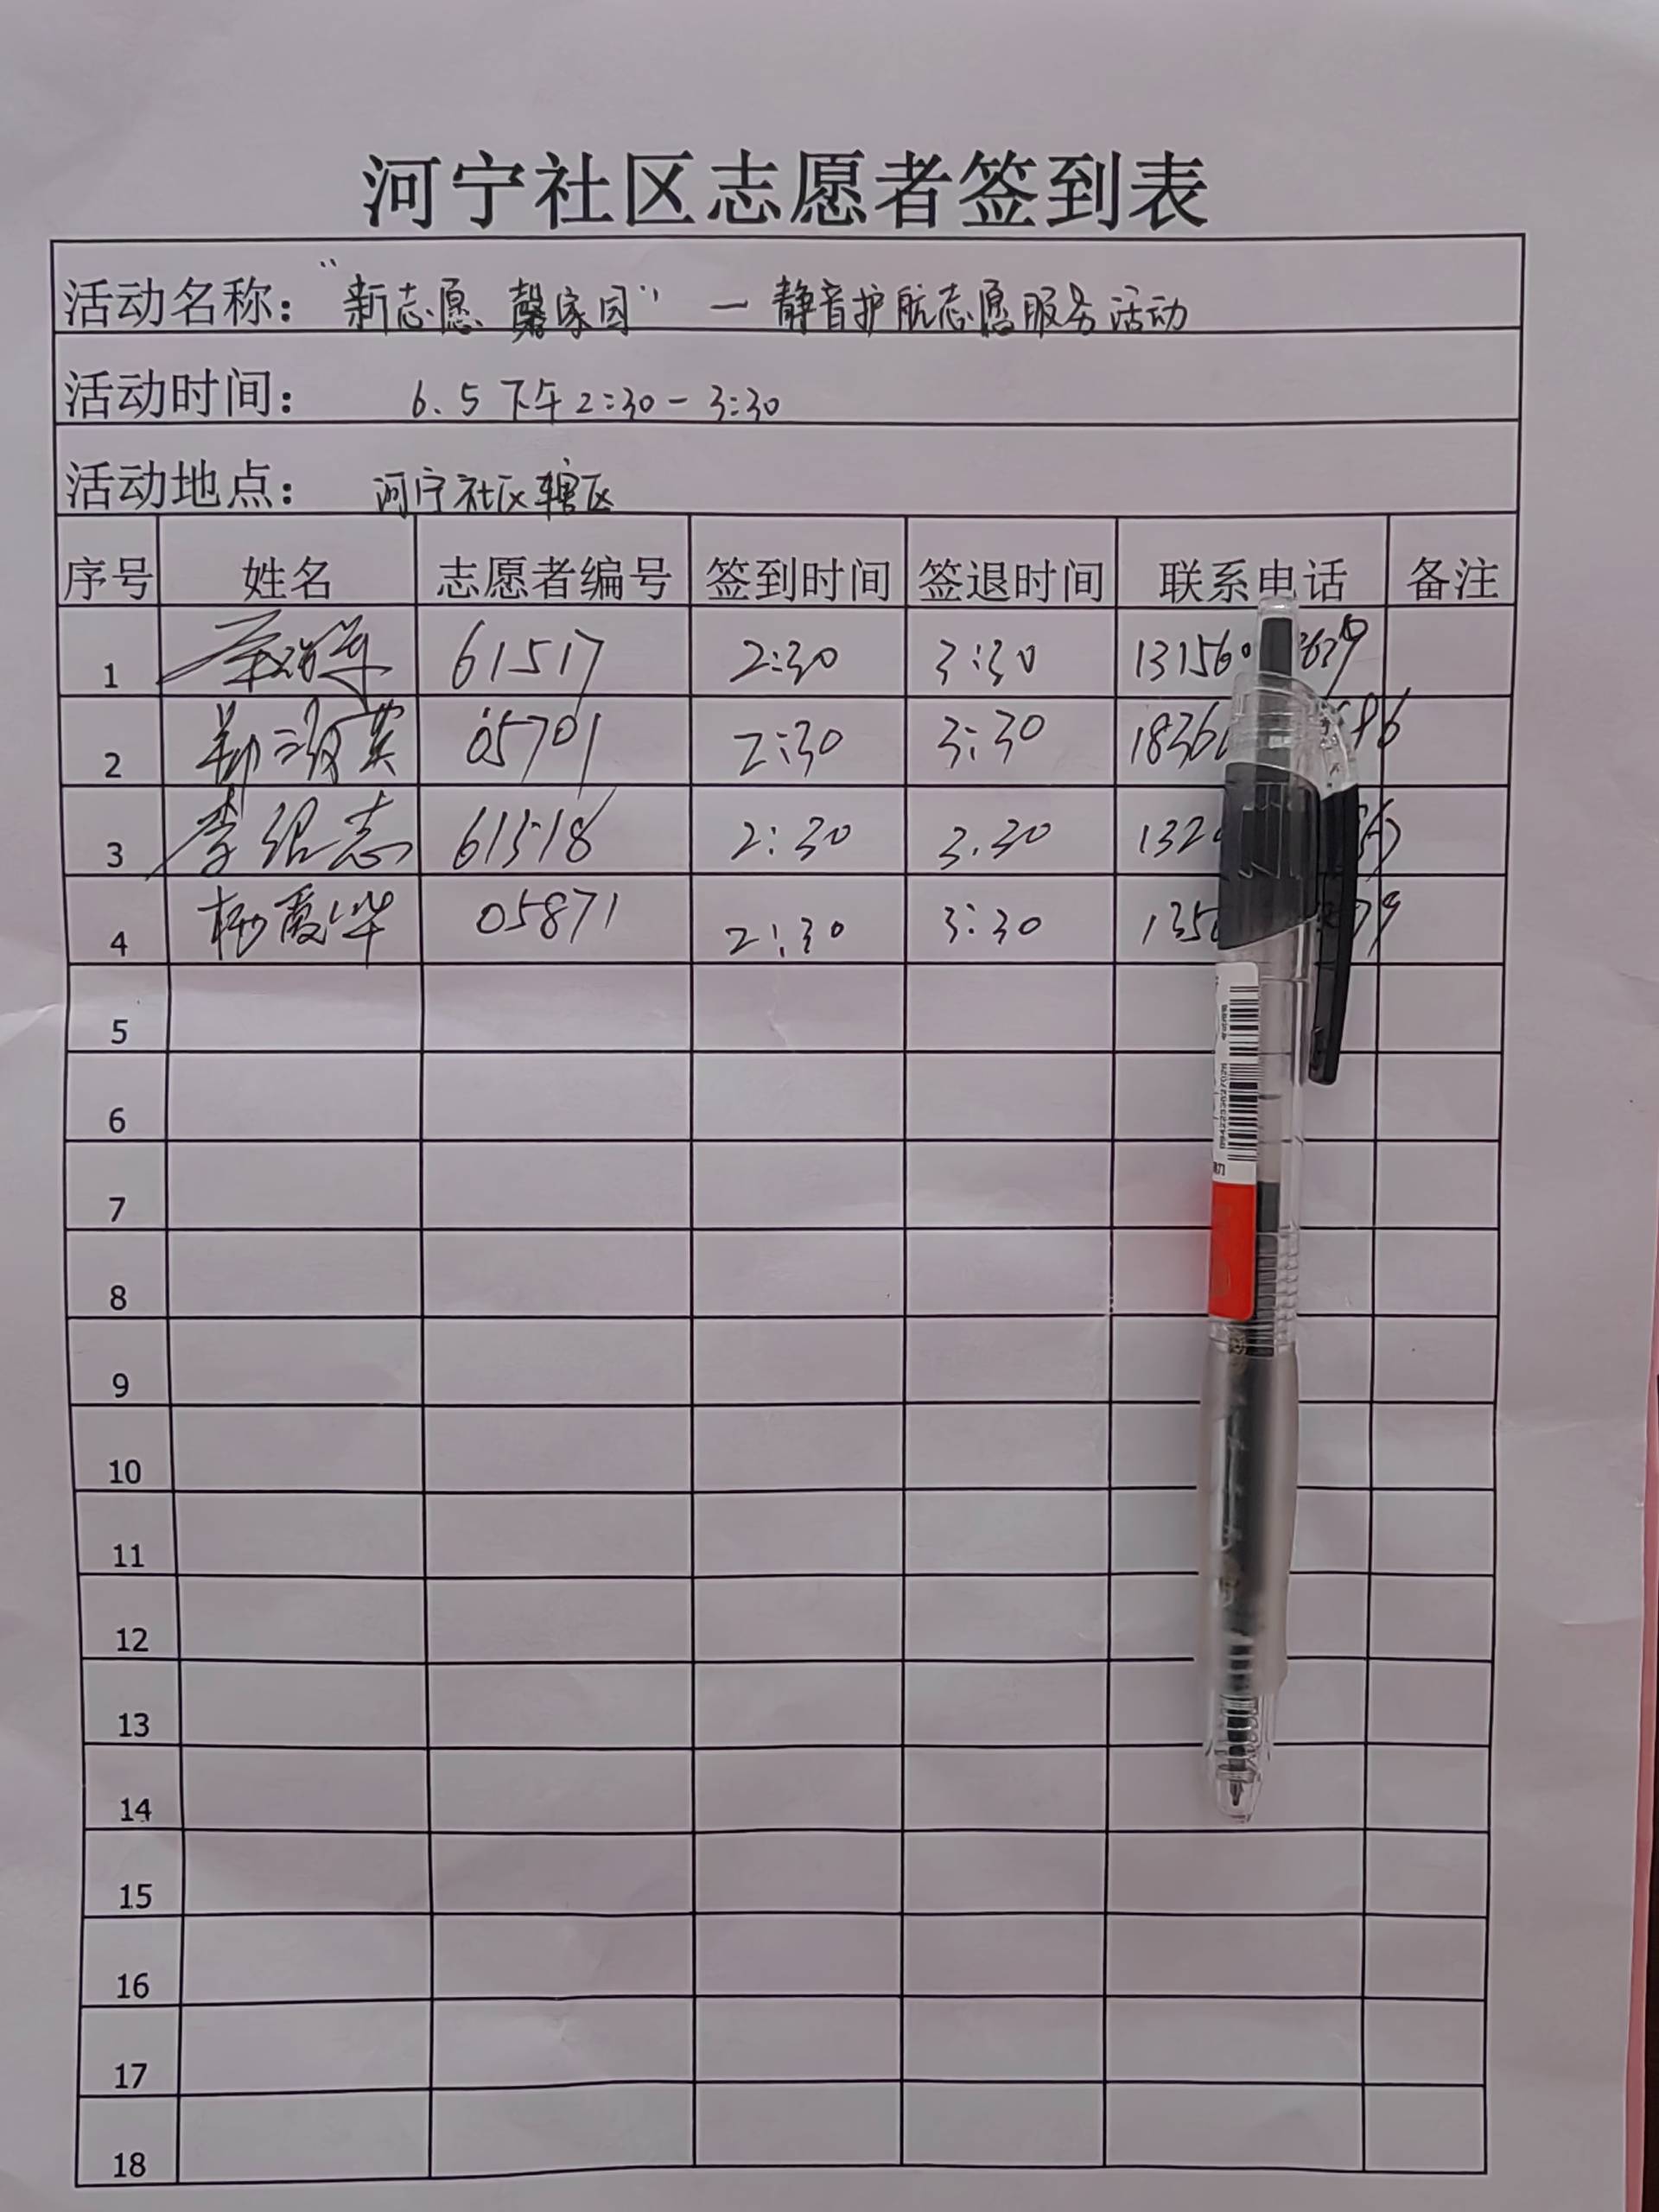 河宁社区志愿者签到表
活动名称："新志愿 馨家园"—静音护航志愿服务活动
活动时间： 6.5 下午2:30-3:30
活动地点： 河宁社区辖区
序号 姓名 志愿者编号 签到时间 签退时间 联系电话 备注
1 61517 2:30 3:30 13156
2 05701 2:30 3:30 1836
3 李绍志 61518 2:30 3.30 132
4 杨霞华 05871 2:30 3:30 135
5
6
7
8
9
10
11
12
13
14
15
16
17
18